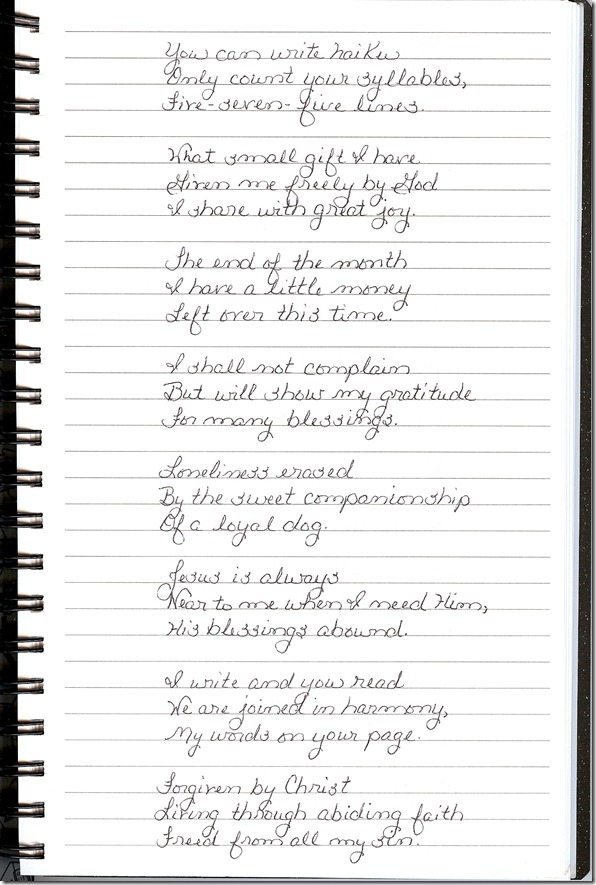 You can write haiku
Only count your syllables,
Five-seven-five lines.
What small gift I have
Given me freely by God
I share with great joy.
The end of the month
I have a little money
Left over this time.
I shall not complain
But will show my gratitude
For many blessings.
Loneliness erased
By the sweet companionship
Of a loyal dog.
Jesus is always
Near to me when I need Him,
His blessings abound.
I write and you read
We are joined in harmony,
My words on your page.
Forgiven by Christ
Living through abiding faith
Freed from all my sin.